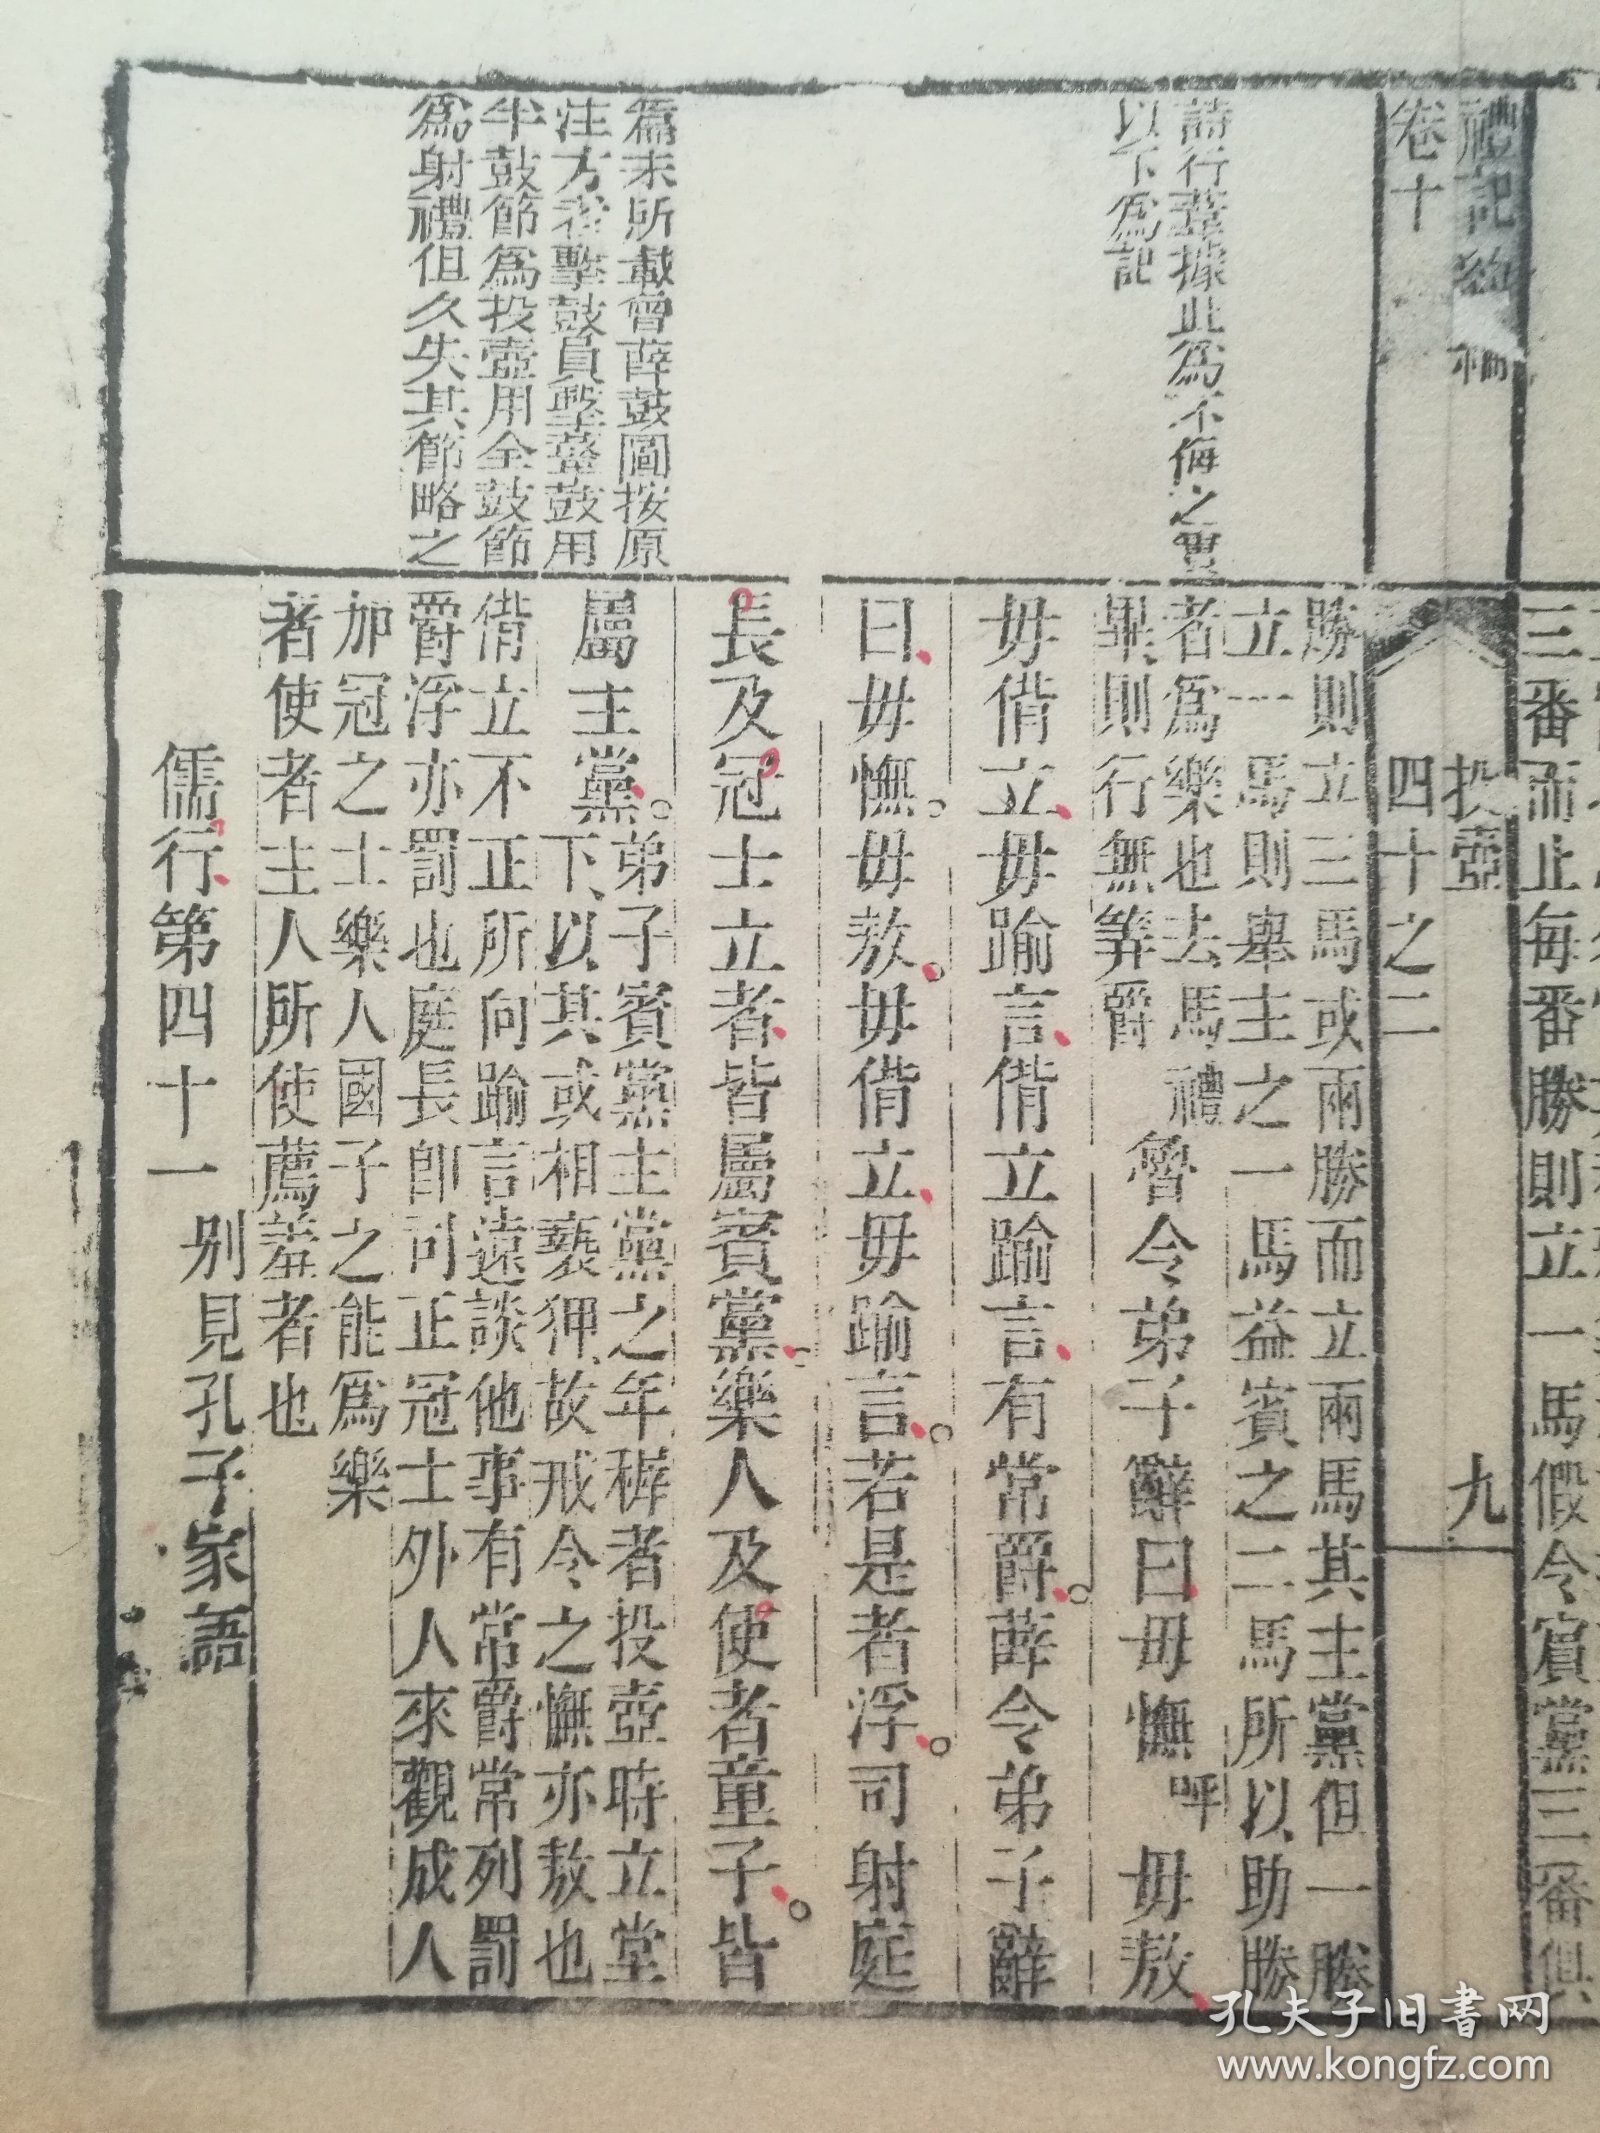 三番而止每番勝則立一馬假令賓黨三番俱
禮記
卷十
投壺
四十之二
九
詩行葦據此為不侮之
以下為記
勝則立三馬或兩勝而立兩馬其主黨但一勝
立一馬則舉主之一馬益賓之二馬所以助勝
者為樂也去馬禮
畢則行無筭爵
魯令弟子辭曰毋憮呼毋敖
毋偝立毋踰言偝立踰言有常爵薛令弟子辭
曰毋憮毋敖毋偝立毋踰言若是者浮司射庭
長及冠士立者皆屬賓黨樂人及使者童子皆
篇末所載魯薛鼓圖按原
注方者擊鼓員擊鼙鼓用
半鼓節為投壺用全鼓節
為射禮但久失其節略之
屬主黨
弟子賓黨主黨之年穉者投壺時立堂
下以其或相褻狎故戒令之憮亦敖也
偝立不正所向踰言遠談他事有常爵常列罰
爵浮亦罰也庭長即司正冠士外人來觀成人
加冠之士樂人國子之能為樂
者使者主人所使薦羞者也
儒行第四十一
別見孔子家語
孔夫子旧书网
www.kongfz.com